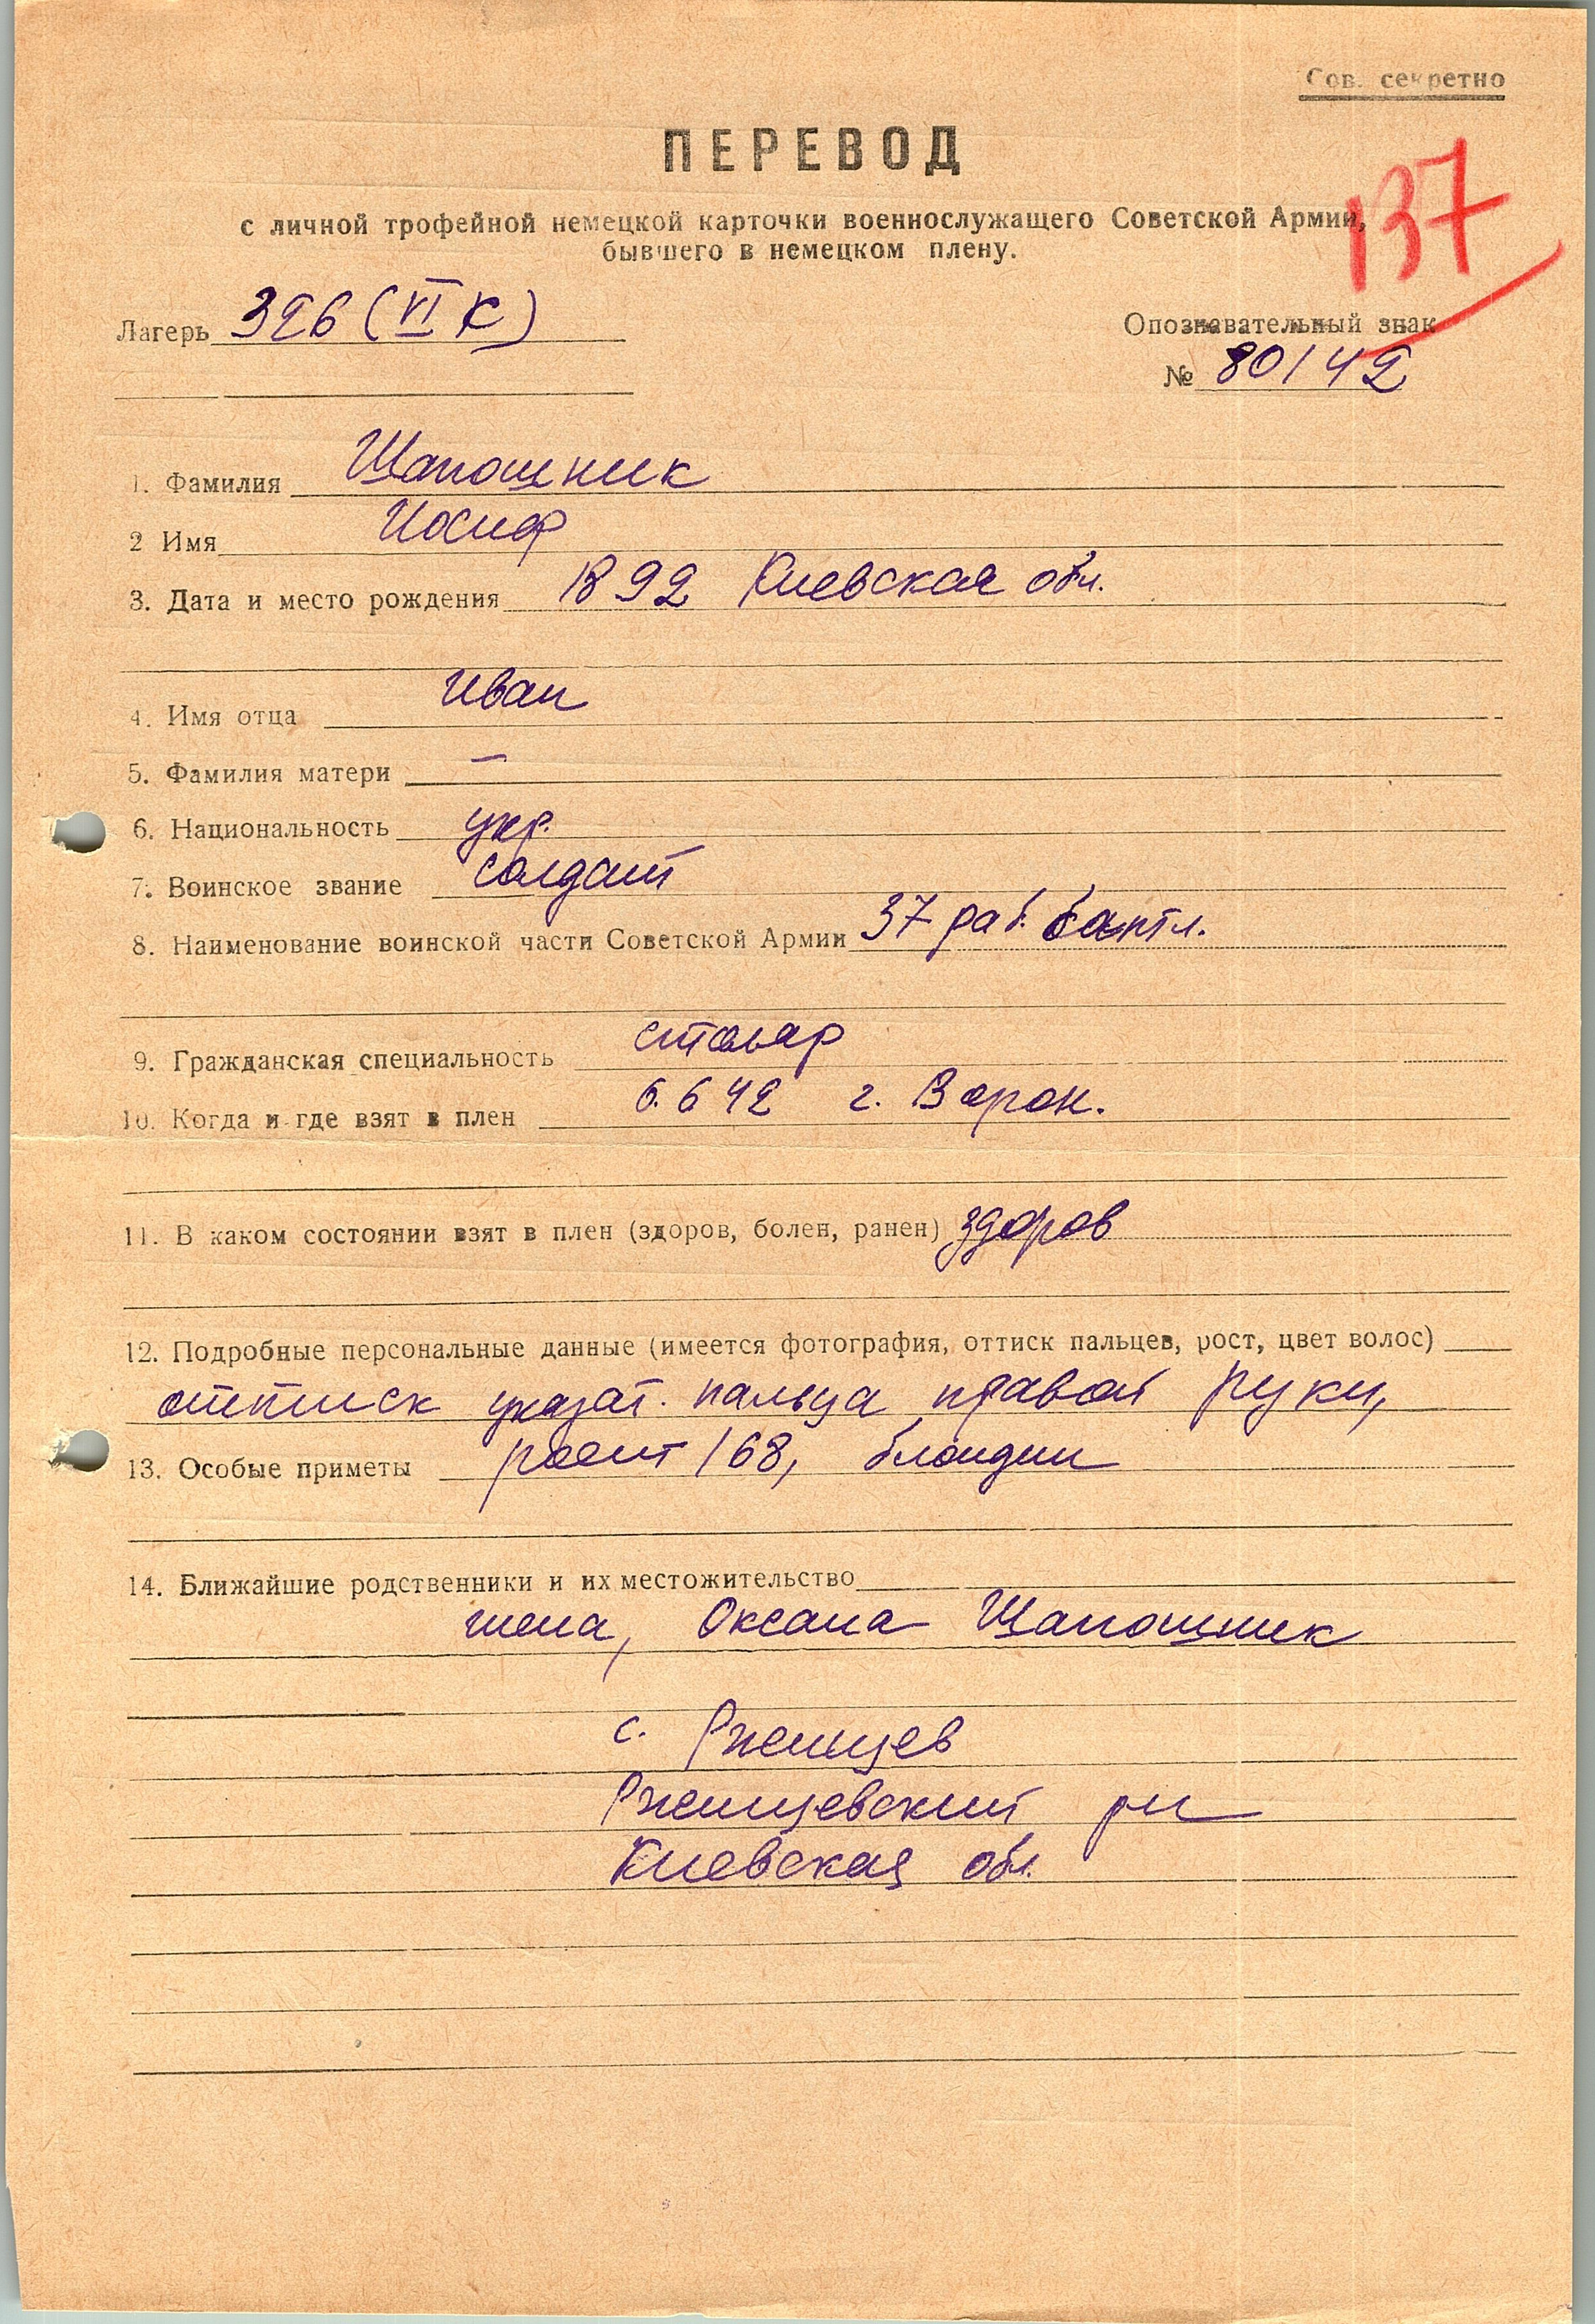 Сов. секретно
ПЕРЕВОД
137
с личной трофейной немецкой карточки военнослужащего Советской Армии,
бывшего в немецком плену.
Лагерь 326 (VI К)
Опознавательный знак
№ 80142
1. Фамилия Шапошник
2 Имя Иосиф
3. Дата и место рождения 1892 Киевская обл.
4. Имя отца Иван
5. Фамилия матери —
6. Национальность укр.
7. Воинское звание солдат
8. Наименование воинской части Советской Армии 37 раб.
9. Гражданская специальность столяр
10. Когда и где взят в плен 6.6 42 г. Ворон.
11. В каком состоянии взят в плен (здоров, болен, ранен) здоров
12. Подробные персональные данные (имеется фотография, оттиск пальцев, рост, цвет волос)
оттиск указат. пальца правой руки,
13. Особые приметы рост 168, блондин
14. Ближайшие родственники и их местожительство
жена, Оксана Шапошник
с. Ржищев
Ржищевский рн
Киевская обл.